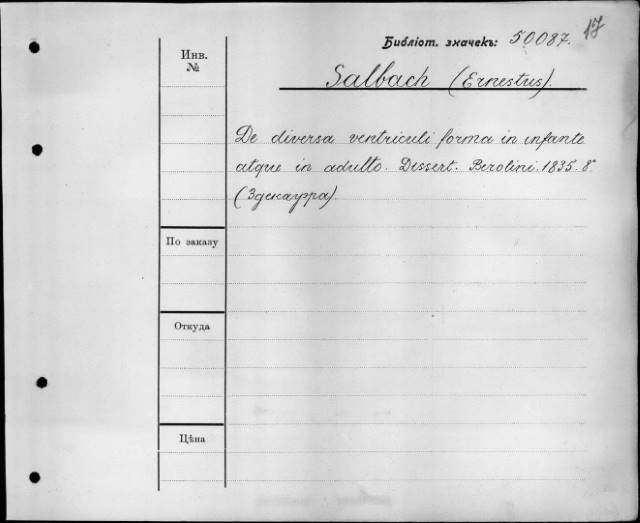 17
Библіот. значекъ: 50087.
Инв.
№
Salbach (Ernestus).
De diversa ventriculi forma in infante
atque in adulto. Dissert. Berolini. 1835. 8°.
(3 декаурра).
По заказу
Откуда
Цѣна